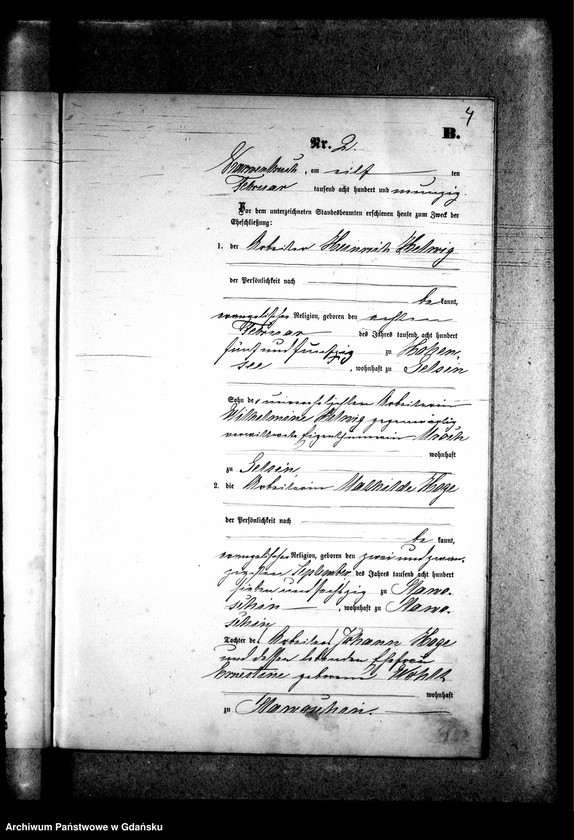 4
B.
Nr. 2.
am eilf ten
Februar tausend acht hundert und neunzig.
Vor dem unterzeichneten Standesbeamten erschienen heute zum Zweck der
Eheschließung:
1. der Arbeiter Heinrich Helwig
der Persönlichkeit nach
be kannt,
evangelischer Religion, geboren den achten
Februar des Jahres tausend acht hundert
fünf und fünfzig zu Hohen-
see, wohnhaft zu Gelsin
Sohn der unverehelichten Arbeiterin
Wilhelmine Helwig gegenwärtig
verwittwete Eigenthümerin
wohnhaft
zu Gelsin,
2. die Arbeiterin Mathilde Hoge
der Persönlichkeit nach
be kannt,
evangelischer Religion, geboren den zwei und zwan-
zigsten September des Jahres tausend acht hundert
sieben und sechzig zu
, wohnhaft zu
Tochter des Arbeiters Johann Hoge
und dessen lebenden Ehefrau
Ernestine geborene Wohlt
wohnhaft
zu
Archiwum Państwowe w Gdańsku